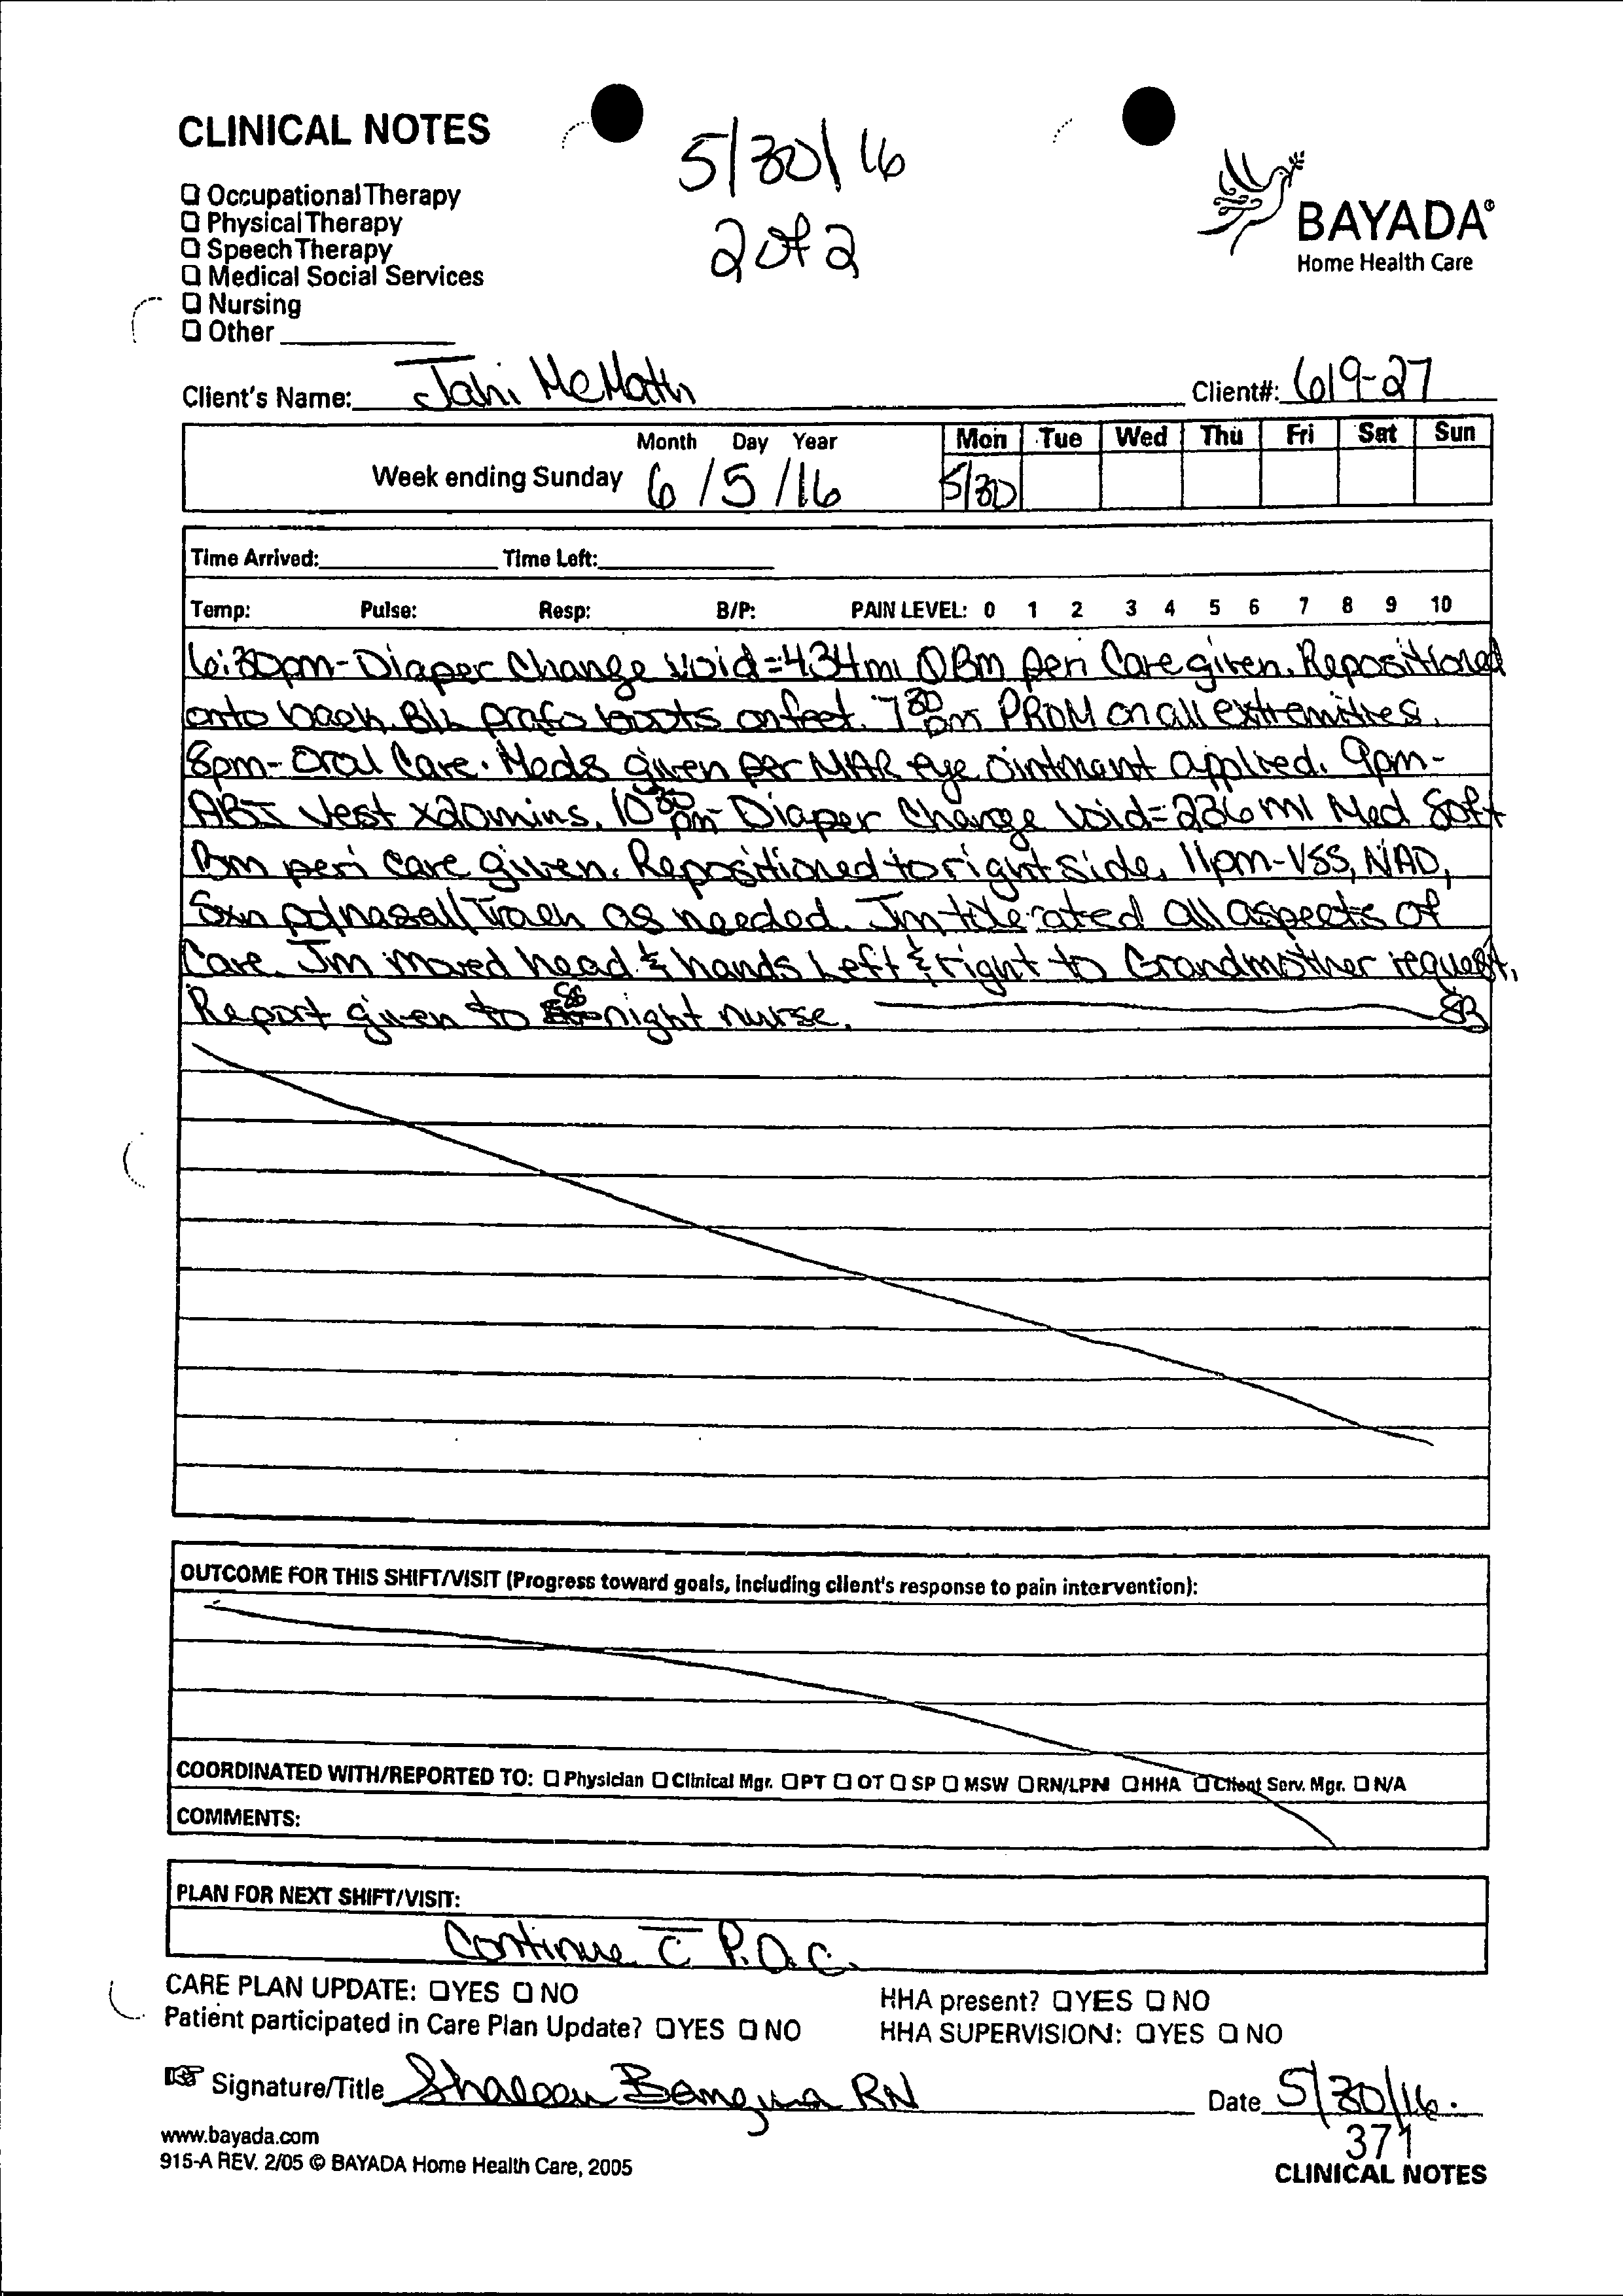 CLINICAL NOTES
5/30/16
2 of 2
☐ Occupational Therapy
☐ Physical Therapy
☐ Speech Therapy
☐ Medical Social Services
☐ Nursing
☐ Other
BAYADA®
Home Health Care
Client's Name: Jahi McMath Client#: 619-27
Month Day Year Mon Tue Wed Thu Fri Sat Sun
Week ending Sunday 6 / 5 / 16 5/30
Time Arrived: Time Left:
Temp: Pulse: Resp: B/P: PAIN LEVEL: 0 1 2 3 4 5 6 7 8 9 10
6:30pm - Diaper Change Void = 434 ml BM peri Care given. Repositioned
onto back. BLL boots on feet. 7:30pm PROM on all extremities.
8pm - Oral Care. Meds given per MAR eye ointment applied. 9pm -
Vest x20mins. 10:30pm - Diaper Change Void = 226 ml Med Soft
Bm peri care given. Repositioned to right side. 11pm - VSS, NAD,
Sxn nasal/Trach as needed. Jm tolerated all aspects of
Care. Jm moved head & hands Left & right to Grandmother request.
Report given to night nurse. SB
OUTCOME FOR THIS SHIFT/VISIT (Progress toward goals, including client's response to pain intervention):
COORDINATED WITH/REPORTED TO: ☐ Physician ☐ Clinical Mgr. ☐ PT ☐ OT ☐ SP ☐ MSW ☐ RN/LPN ☐ HHA ☐ Client Serv. Mgr. ☐ N/A
COMMENTS:
PLAN FOR NEXT SHIFT/VISIT:
Continue c̄ P.O.C.
CARE PLAN UPDATE: ☐ YES ☐ NO HHA present? ☐ YES ☐ NO
Patient participated in Care Plan Update? ☐ YES ☐ NO HHA SUPERVISION: ☐ YES ☐ NO
Signature/Title RN Date 5/30/16.
www.bayada.com 371
915-A REV. 2/05 © BAYADA Home Health Care, 2005 CLINICAL NOTES